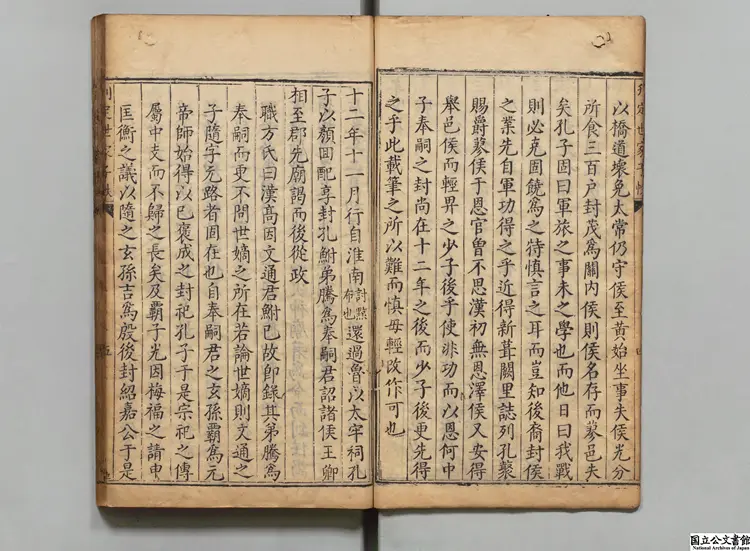 以橋道壞免太常仍守侯至黃始坐事失侯光分
所食三百户封茂爲關内侯則侯名存而蓼邑夫
矣孔子固曰軍旅之事未之學也而他日曰我戰
則必克固饒爲之特慎言之耳而豈知後裔封侯
之業先自軍功得之乎近得新葺闕里誌列孔藂
賜爵蓼侯于恩官曾不思漢初無恩澤侯又安得
舉邑侯而輕畀之少子後乎使非功而以恩何中
子奉嗣之封尚在十二年之後而少子後更先得
之乎此載筆之所以難而慎毋輕改作可也
十二年十一月行自淮南討黥布也還過魯以太牢祠孔
子以顏回配享封孔鮒弟騰爲奉嗣君詔諸侯王卿
相至郡先廟謁而後從政
職方氏曰漢高因文通君鮒已故卽錄其弟騰爲
奉嗣而更不問世嫡之所在若論世嫡則文通之
子隨字元路者固在也自奉嗣君之玄孫霸爲元
帝師始得以已褒成之封祀孔子于是宗祀之傳
屬中支而不歸之長矣及霸子光因梅福之請申
匡衡之議以隨之玄孫吉爲殷後封紹嘉公于是
国立公文書館
National Archives of Japan